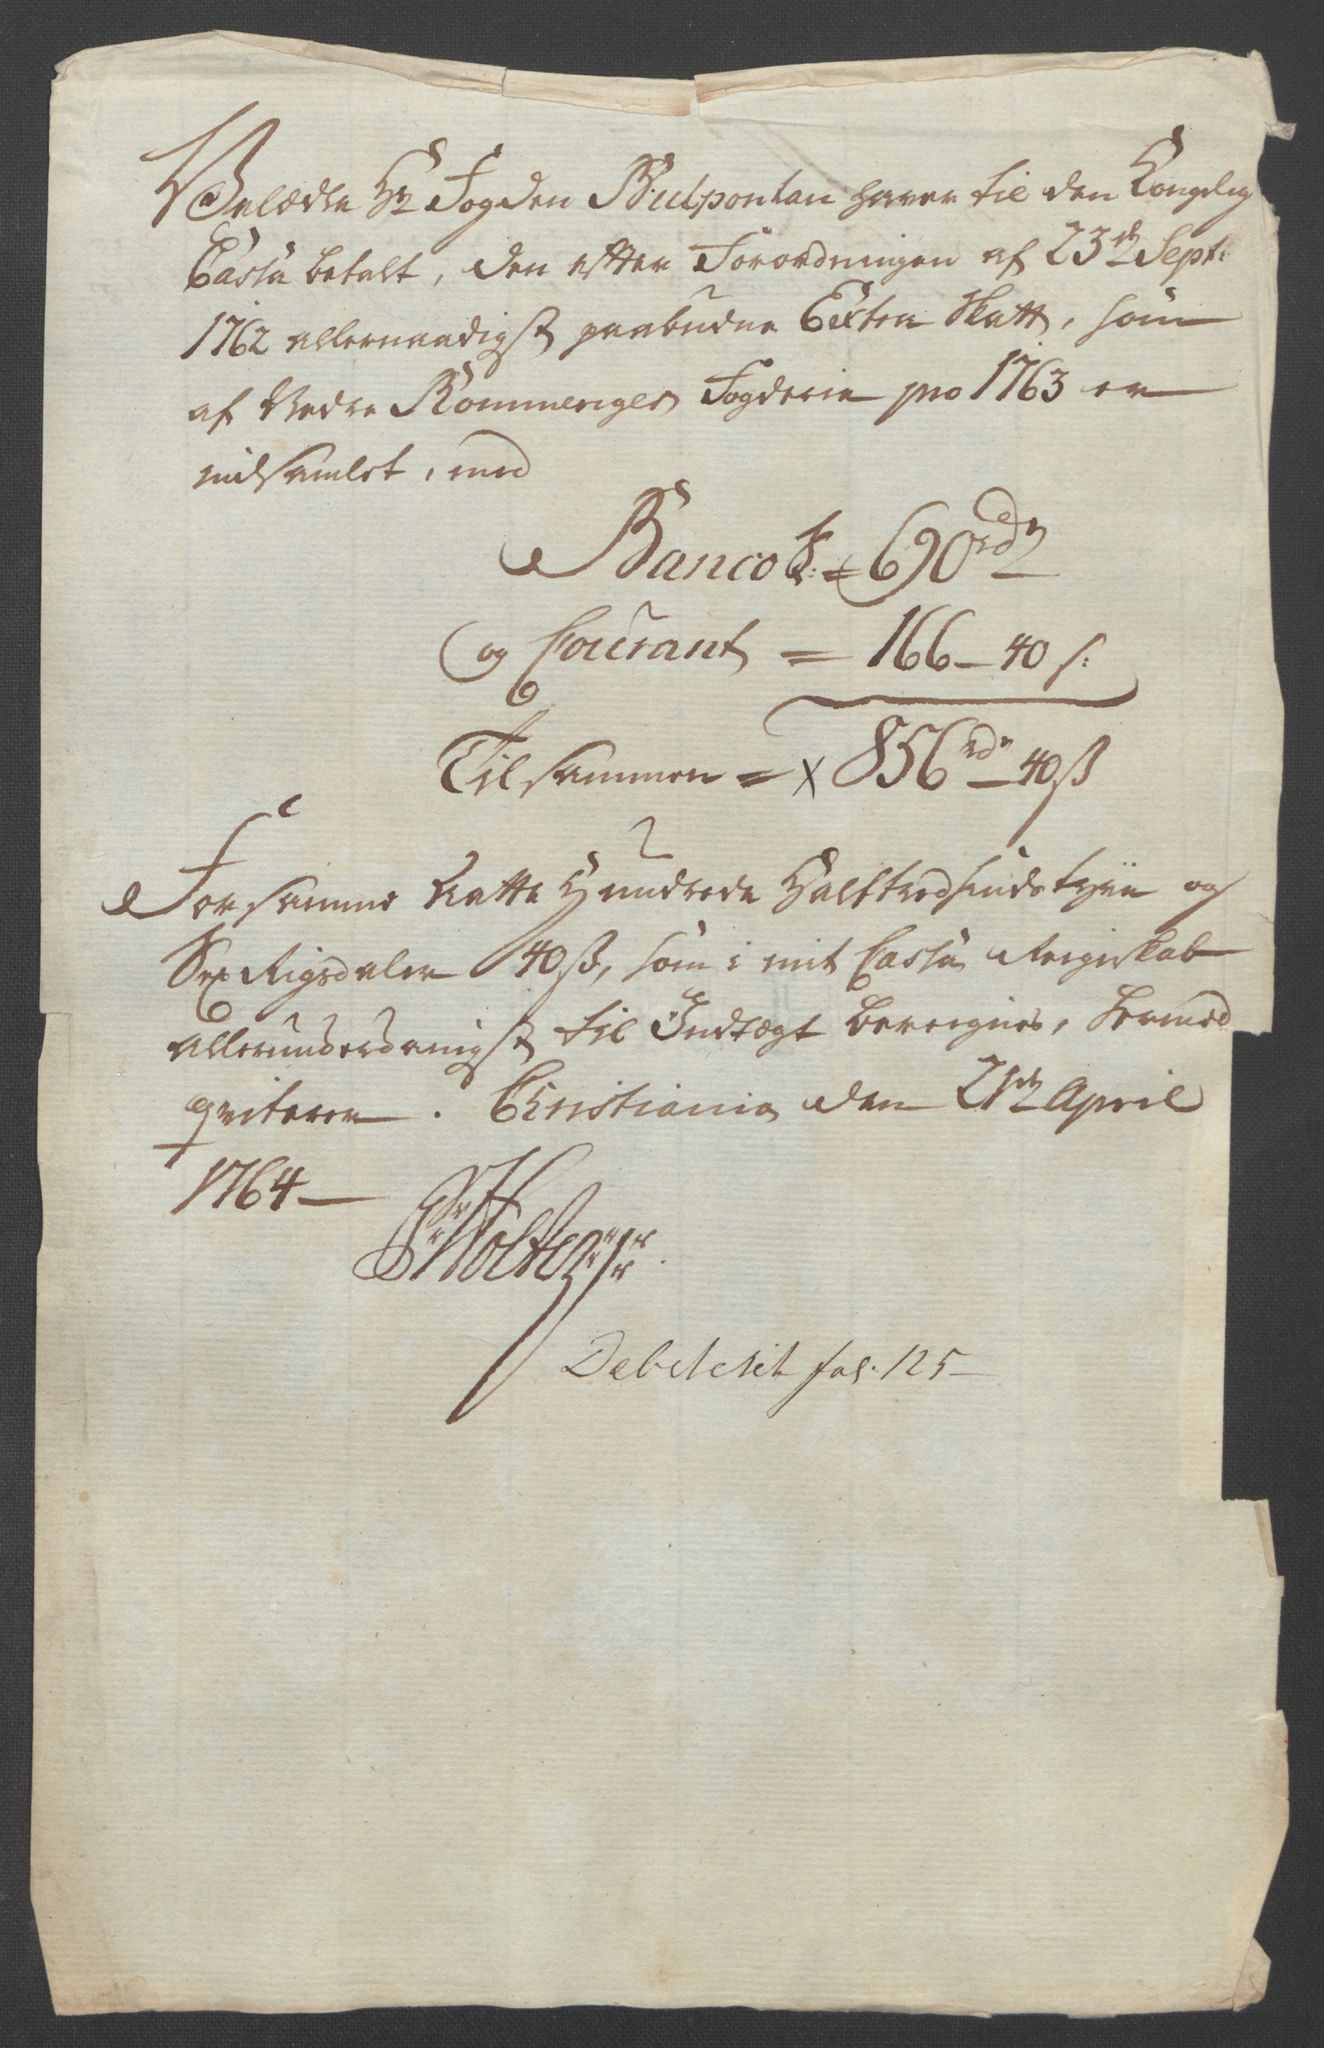 Velædle Hr Fogden Wulpontan haver til den Kongelig
Cassa betalt, den efter Forordningen af 23de Sept:
1762 allernaadigst paabudne Extra Skatt, som
af Nedre Rommeriges Fogderie pro 1763 er
indsamlet, med
Banco = 690 rdr
og Courant = 166 - 40 s:
Tilsammen = x 856 rdr - 40 ß
For samme Aatte Hundrede Halftredsindstyve og
Sex Rigsdaler 40 ß, som i mit Cassa Reignskab
allerunderdanigst til Indtægt bereignes, hermed
qviterer. Christiania den 21de April
1764 -
Debiterit fol. 125 -